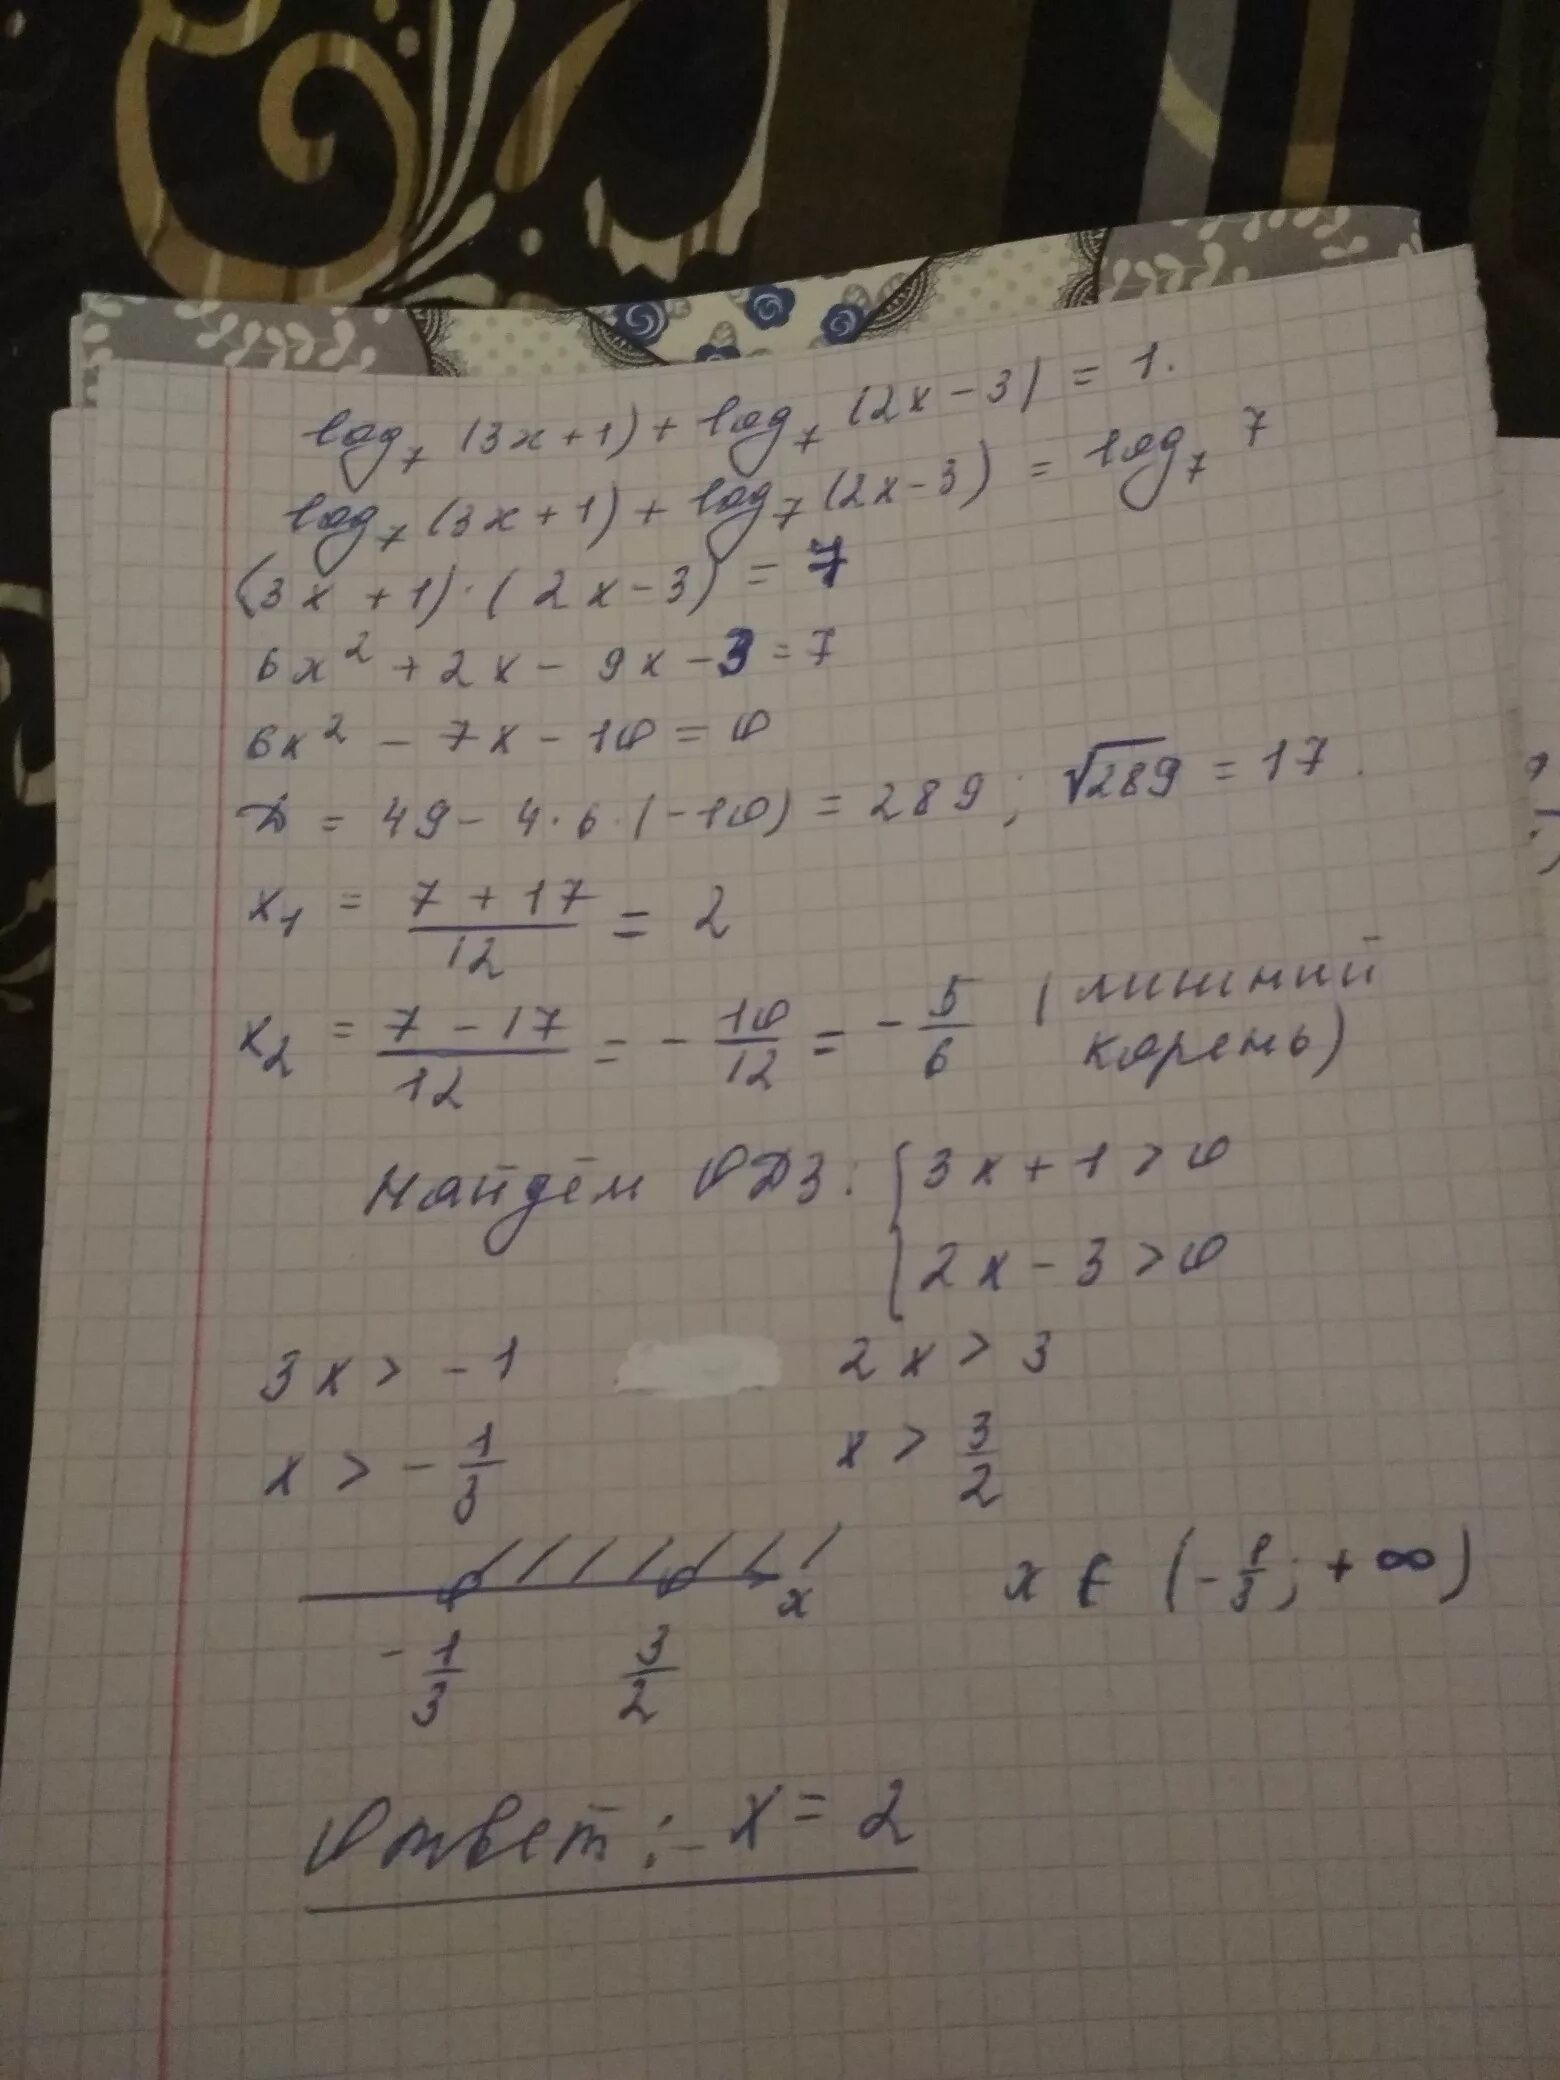 log₇ (3x+1) + log₇ (2x-3) = 1.
log₇ (3x+1) + log₇ (2x-3) = log₇ 7
(3x+1)·(2x-3) = 7
6x² + 2x - 9x - 3 = 7
6x² - 7x - 10 = 0
D = 49 - 4·6·(-10) = 289; √289 = 17.
x₁ = (7+17)/12 = 2
x₂ = (7-17)/12 = -10/12 = -5/6 (лишний
корень)
Найдём ОДЗ: { 3x+1>0
2x-3>0
3x > -1 2x > 3
x > -1/3 x > 3/2
x x ∈ (-1/3; +∞)
-1/3 3/2
Ответ: x = 2